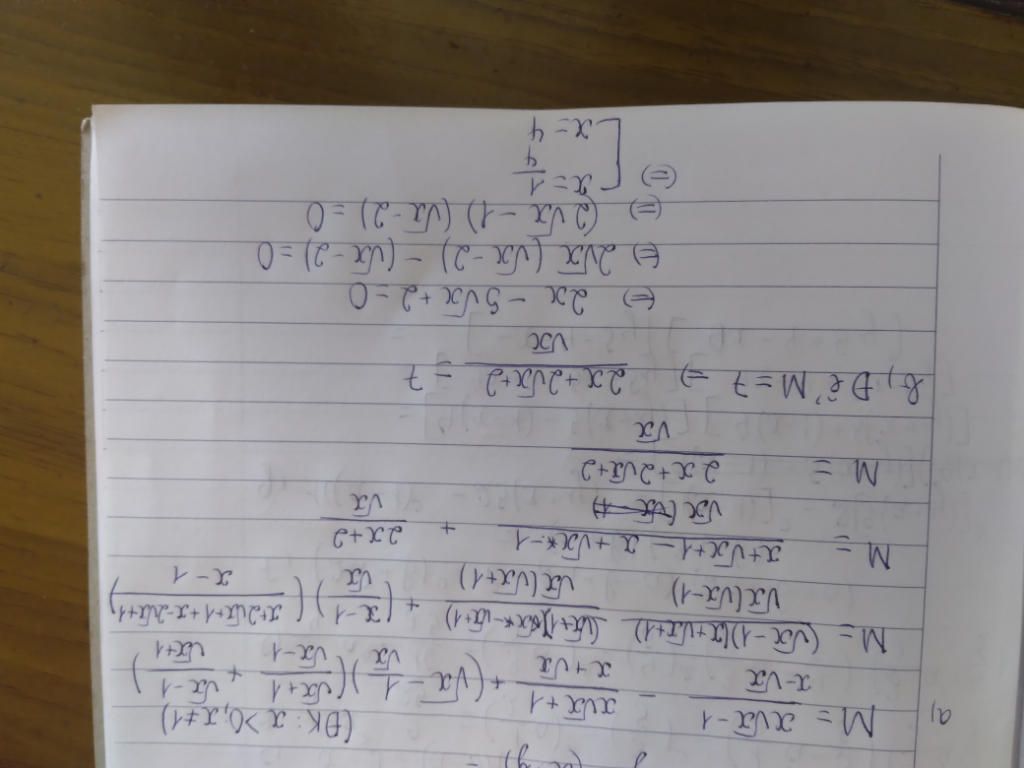 a, M = (x√x - 1)/(x - √x) - (x√x + 1)/(x + √x) + (√x - 1/√x)((√x + 1)/(√x - 1) + (√x - 1)/(√x + 1)) (ĐK: x > 0, x ≠ 1)
M = (√x - 1)(x + √x + 1)/√x(√x - 1) - (√x + 1)(x - √x + 1)/√x(√x + 1) + ((x - 1)/√x)((x + 2√x + 1 + x - 2√x + 1)/(x - 1))
M = (x + √x + 1 - x + √x - 1)/√x + (2x + 2)/√x
M = (2x + 2√x + 2)/√x
b, Để M = 7 => (2x + 2√x + 2)/√x = 7
(=) 2x - 5√x + 2 = 0
(=) 2√x (√x - 2) - (√x - 2) = 0
(=) (2√x - 1) (√x - 2) = 0
(=) [ x = 1/4
x = 4